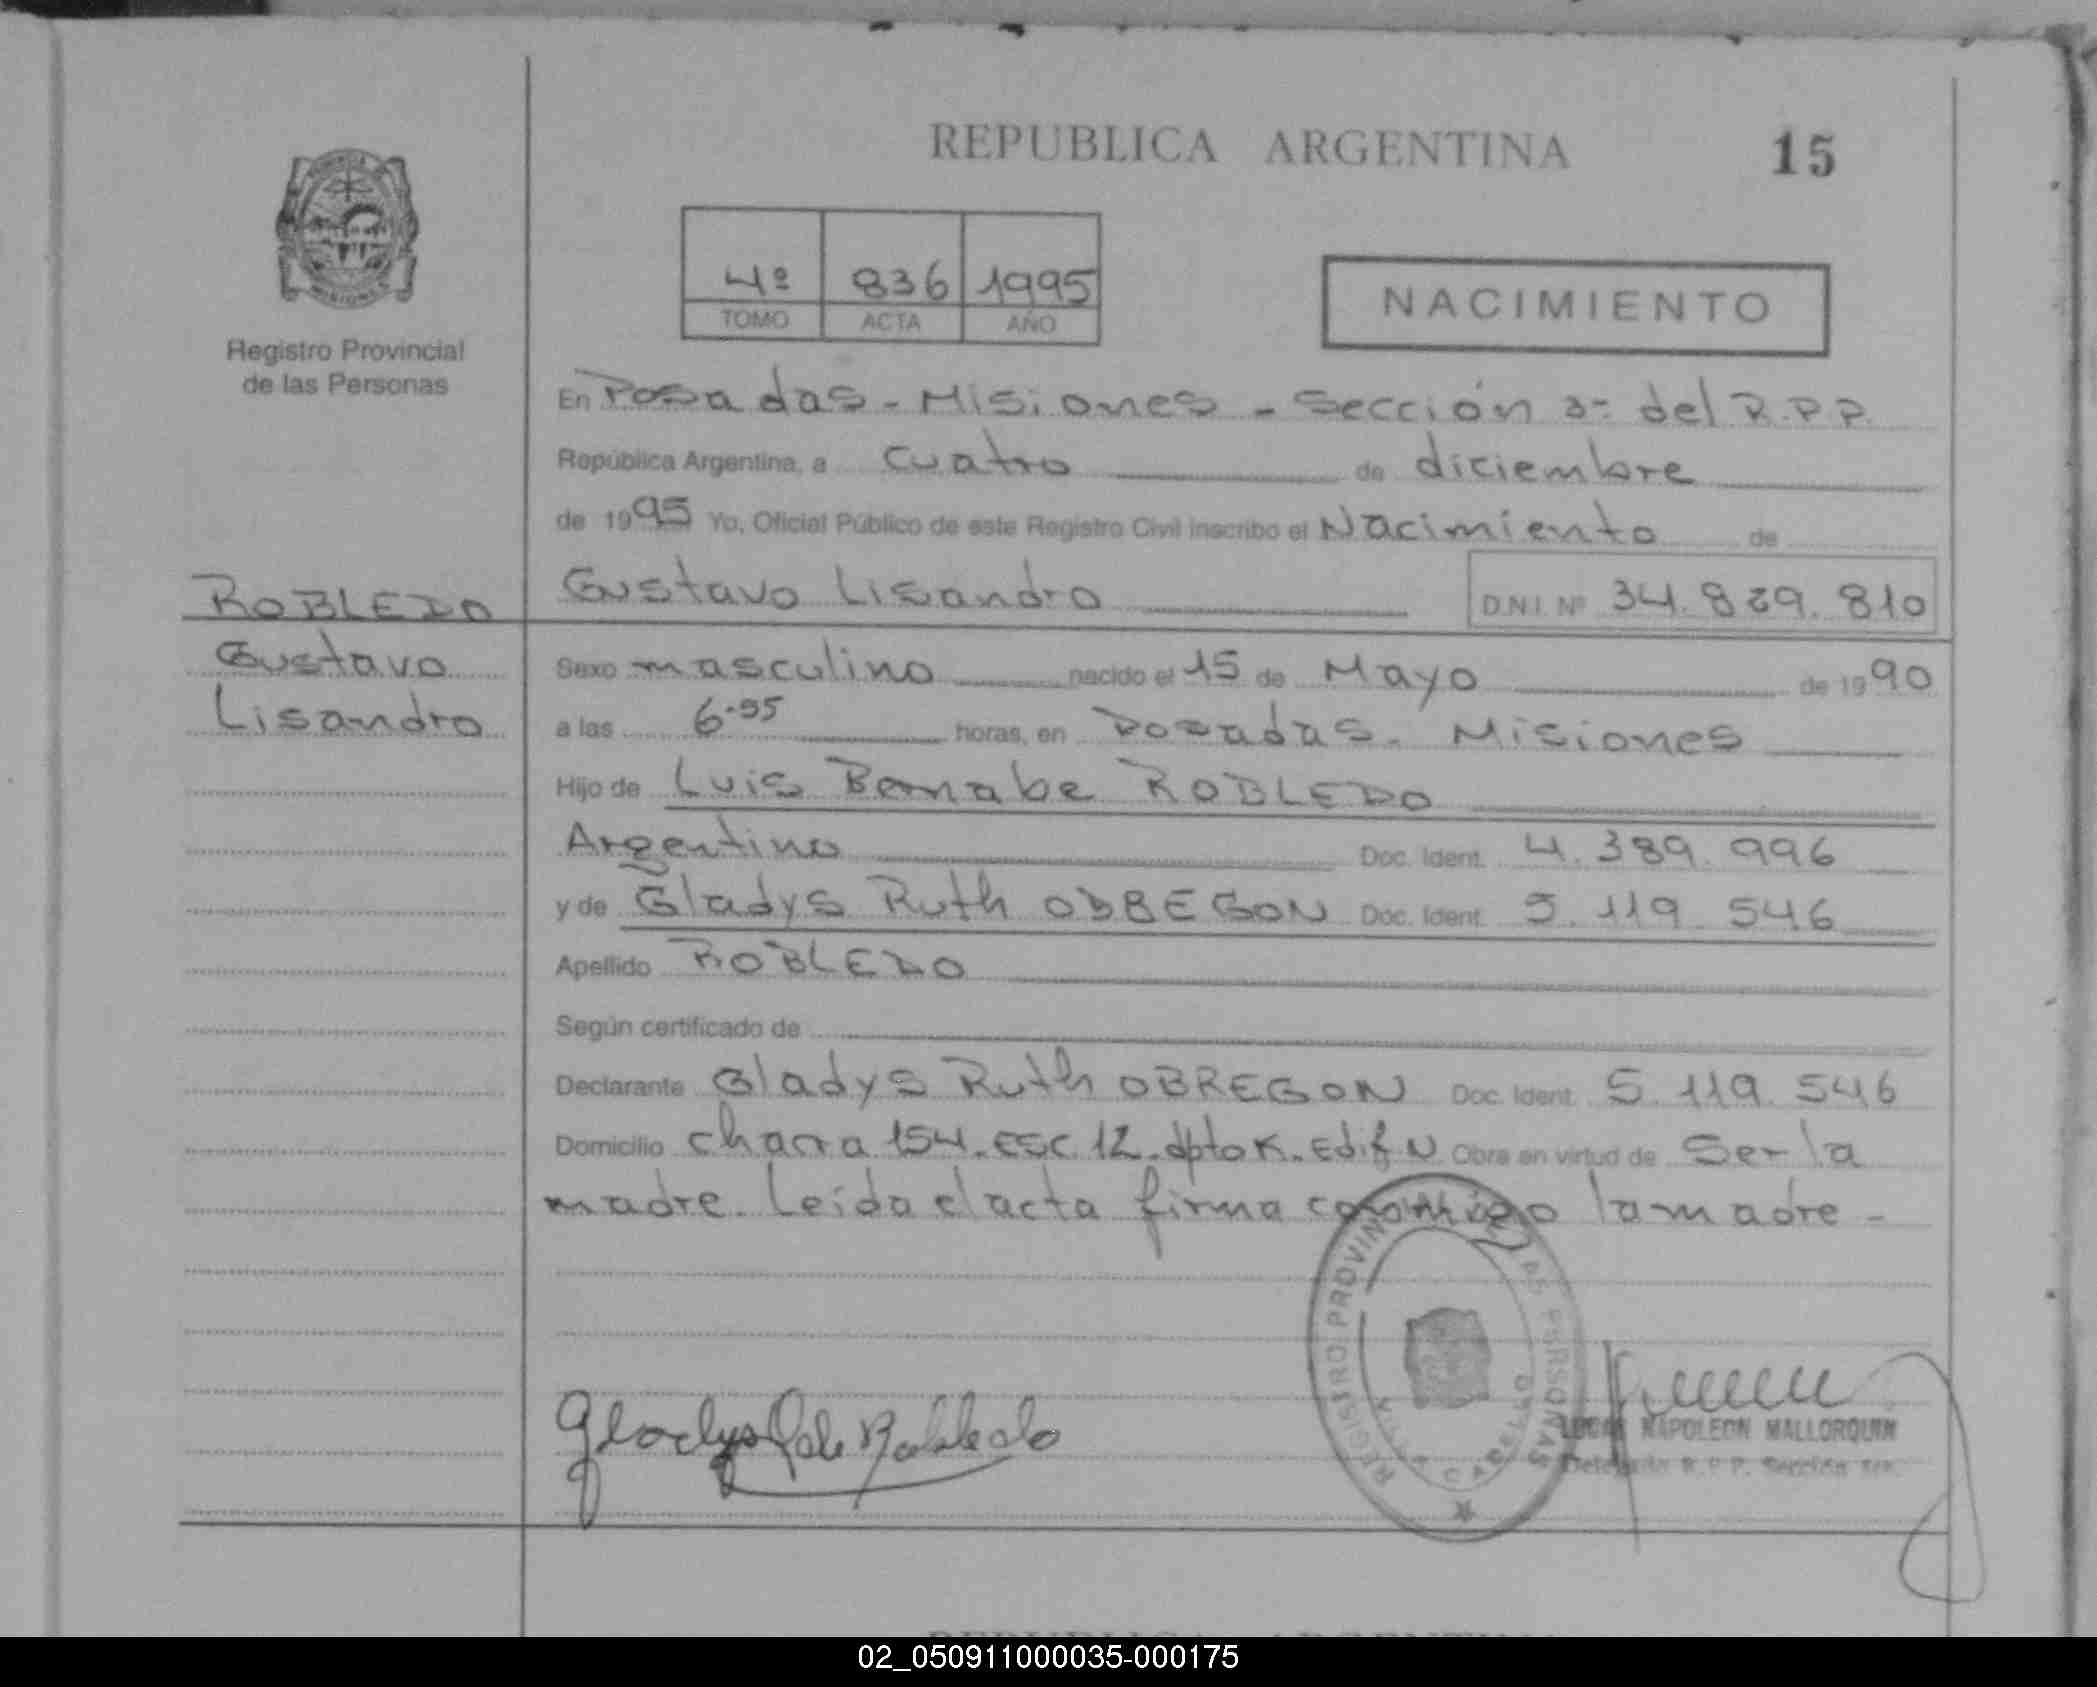 REPUBLICA ARGENTINA
15
4º 836 1995
TOMO ACTA AÑO
NACIMIENTO
MISIONES
Registro Provincial
de las Personas
En Posadas - Misiones - Sección 3ª del R.P.P.
República Argentina, a cuatro de diciembre
de 1995 Yo, Oficial Público de este Registro Civil inscribo el Nacimiento de
ROBLEDO
Gustavo
Lisandro
Gustavo Lisandro D.N.I. Nº 34.839.810
Sexo masculino nacido el 15 de Mayo de 1990
a las 6.55 horas, en Posadas - Misiones
Hijo de Luis Bernabe ROBLEDO
Argentino Doc. Ident. 4.389.996
y de Gladys Ruth OBREGON Doc. Ident. 5.119.546
Apellido ROBLEDO
Según certificado de
Declarante Gladys Ruth OBREGON Doc. Ident. 5.119.546
Domicilio chacra 154. esc 12. dpto K. Edif N Obra en virtud de Ser la
madre. Leida el acta firma conmigo la madre -
REGISTRO PROVINCIAL DE LAS PERSONAS
Gladys O de Robledo
NAPOLEON MALLORQUIN
Delegado R.P.P. Sección 3ra.
REPUBLICA ARGENTINA
02_050911000035-000175